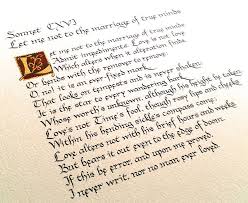 Sonnet CXVI
Let me not to the marriage of true minds
Let me not to the marriage of true minds
Admit impediments. Love is not love
Which alters when it alteration finds
Or bends with the remover to remove:
O, no! it is an ever fixed mark
That looks on tempests and is never shaken:
It is the star to every wandering bark,
Whose worth's unknown, although his height be taken
Love's not Time's fool, though rosy lips and cheeks
Within his bending sickle's compass come;
Love alters not with his brief hours and weeks
But bears it out even to the edge of doom.
If this be error, and upon me proved
I never writ, nor no man ever loved